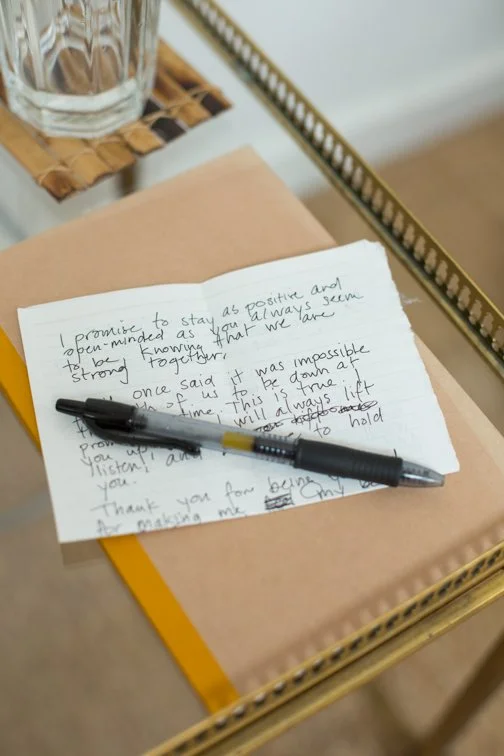 I promise to stay as positive and
open-minded as you always seem
to be knowing that we are
strong together.
once said it was impossible
of us to be down at
time. This is true. I
will always lift
you up,
listen, and to hold
you.
Thank you for being
for making me